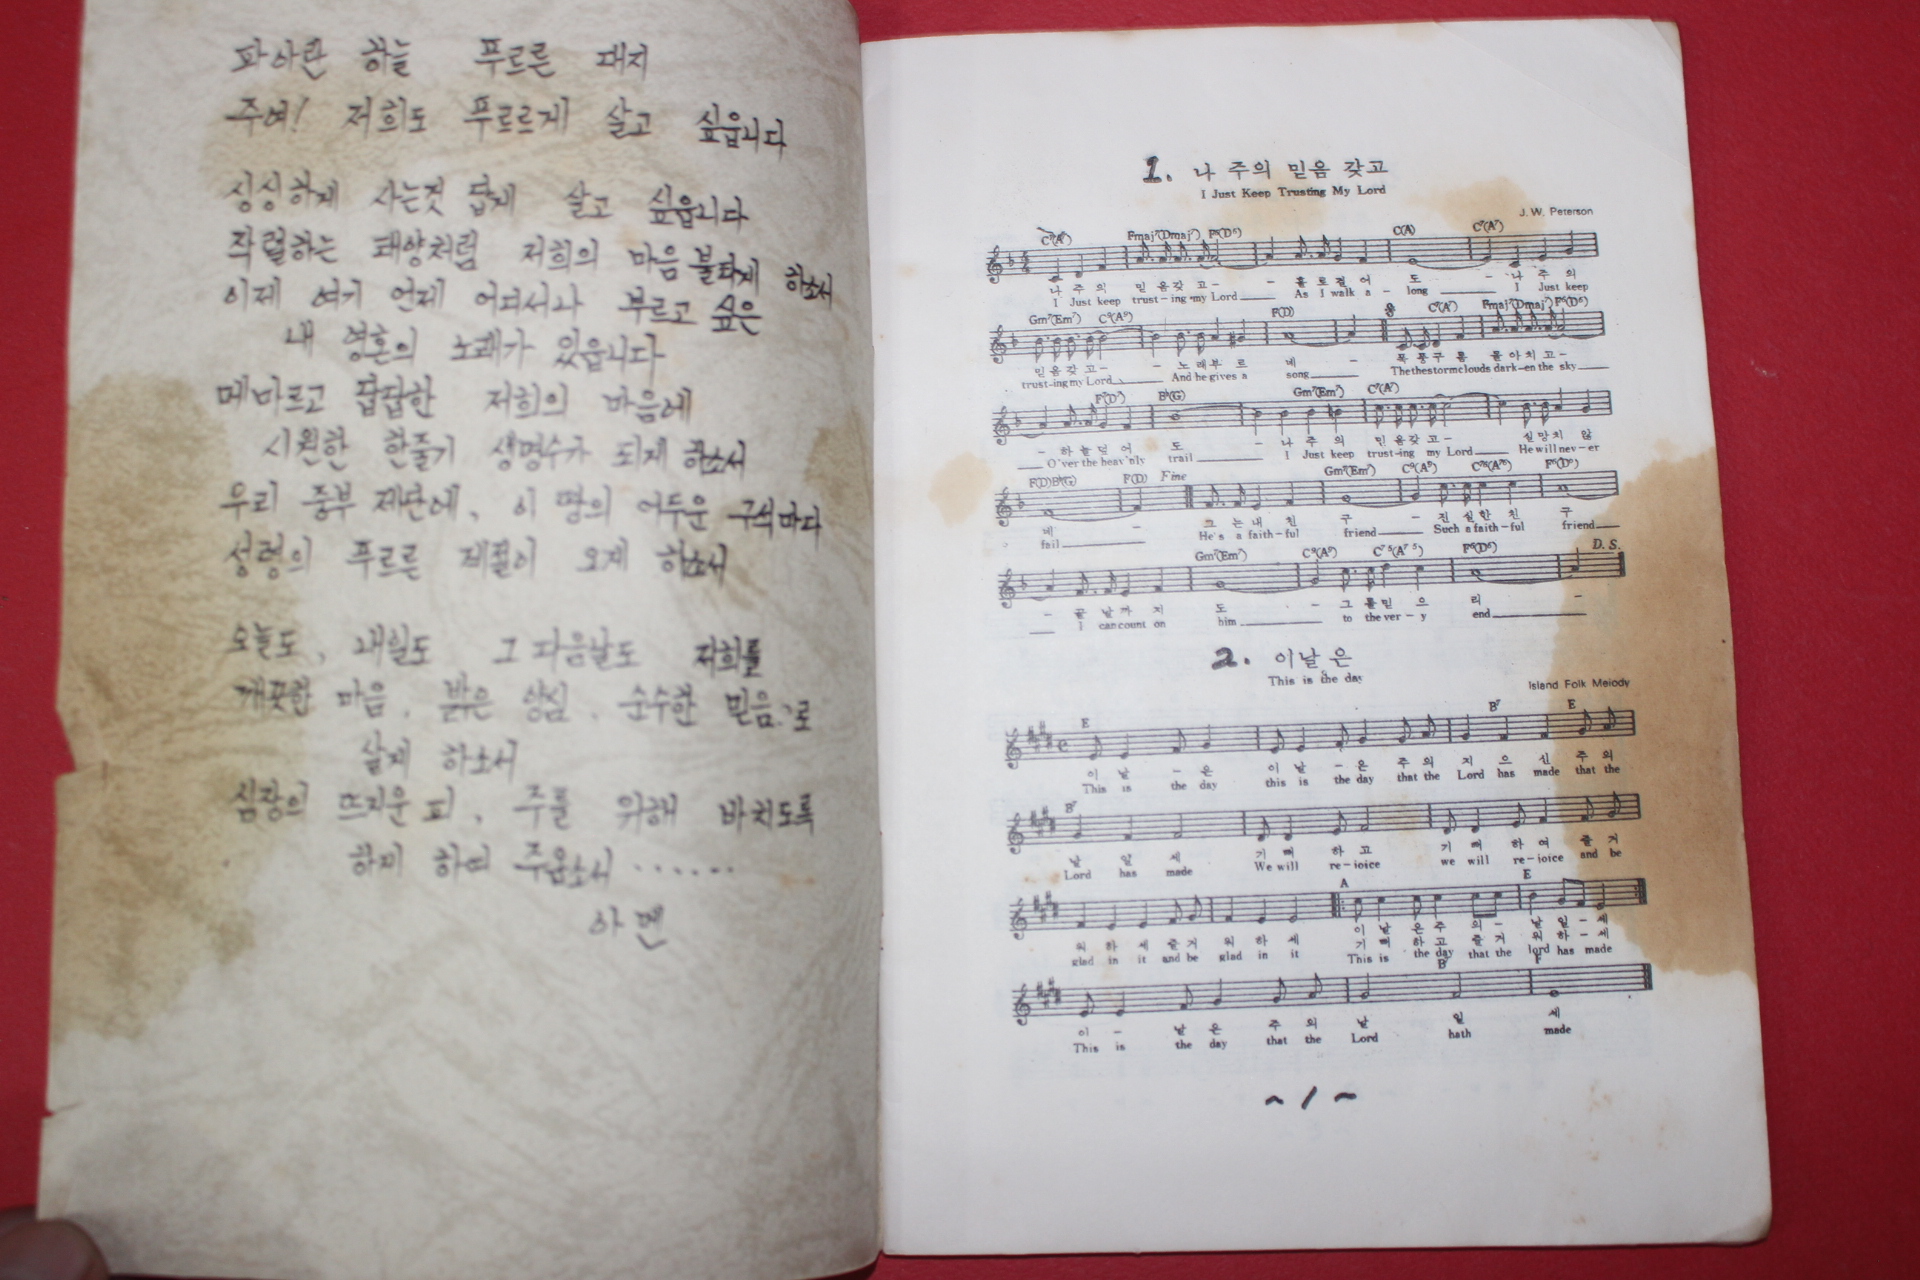 파아란 하늘 푸르른 대지
주여! 저희도 푸르르게 살고 싶읍니다
싱싱하게 사는것 답게 살고 싶읍니다
작렬하는 태양처럼 저희의 마음 불타게 하소서
이제 여기 언제 어디서나 부르고 싶은
내 영혼의 노래가 있읍니다
메마르고 답답한 저희의 마음에
시원한 한줄기 생명수가 되게 하소서
우리 중부 제단에, 이 땅의 어두운 구석마다
성령의 푸르른 계절이 오게 하소서
오늘도, 내일도 그 다음날도 저희를
깨끗한 마음, 밝은 양심, 순수한 믿음으로
살게 하소서
심장의 뜨거운 피, 주를 위해 바치도록
하게 하여 주옵소서 ......
아멘
1. 나 주의 믿음 갖고
I Just Keep Trusting My Lord
J. W. Peterson
Fmaj⁷(Dmaj⁷) C(A)
나 주의 믿음갖고- - 홀로걸어 도 - 나 주 의
I Just keep trust-ing my Lord As I walk a - long I Just keep
Gm⁷(Em⁷) C⁹(A⁹) F(D) C⁷(A⁷) Fmaj⁷(Dmaj⁷) F⁶(D⁶)
믿음갖고- - 노래부 르 네 - 폭풍구 름 몰아치고-
trust-ing my Lord And he gives a song The the storm clouds dark-en the sky
B♭(G) Gm⁷(Em⁷) C⁷(A⁷)
- 하늘덮어 도 - 나 주 의 믿음갖고- 실망치 않
O'ver the heav'nly trail I Just keep trust-ing my Lord He will nev-er
F(D) B♭(G) F(D) Fine Gm⁷(Em⁷) C⁹(A⁹) F⁶(D⁶)
네 - 그는내 친 구 - 진실한 친 구
fail He's a faith-ful friend Such a faith-ful friend
Gm⁷(Em⁷) C⁹(A⁹) F⁶(D⁶) D. S.
- 끝날까 지 도 - 그를믿 으 리 -
I can count on him to the ver-y end
2. 이날은
This is the day
Island Folk Melody
E B⁷ E
이 날 - 은 이 날 - 은 주 의 지 으 신 주 의
This is the day this is the day that the Lord has made that the
B⁷
날 일 세 기 뻐 하 고 기 뻐 하 여 즐 거
Lord has made We will re-joice we will re-joice and be
A E
이 날 은 주 의 - 날 일 - 세
워 하 세 즐 거 워 하 세 기 뻐 하 고 즐 거 워 하 - 세
glad in it and be glad in it This is the day that the lord has made
이 - 날 은 주 의 날 일 세
This is the day that the Lord hath made
~1~